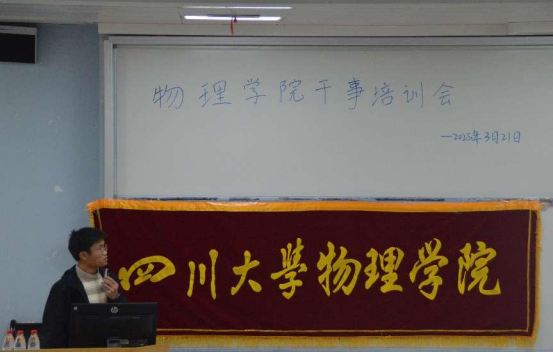 物理学院干事培训会
—2025年3月21日
四川大學物理学院
hp